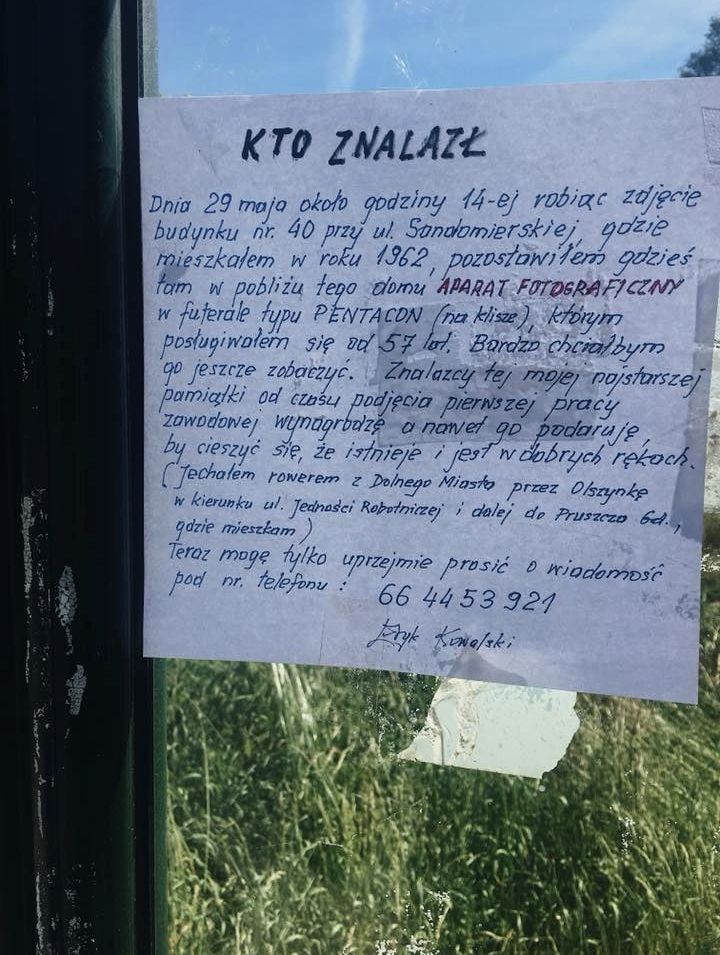 KTO ZNALAZŁ
Dnia 29 maja około godziny 14-ej robiąc zdjęcie
budynku nr. 40 przy ul. Sandomierskiej, gdzie
mieszkałem w roku 1962, pozostawiłem gdzieś
tam w pobliżu tego domu APARAT FOTOGRAFICZNY
w futerale typu PENTACON (na klisze), którym
posługiwałem się od 57 lat. Bardzo chciałbym
go jeszcze zobaczyć. Znalazcy tej mojej najstarszej
pamiątki od czasu podjęcia pierwszej pracy
zawodowej wynagrodzę a nawet go podaruję,
by cieszyć się, że istnieje i jest w dobrych rękach.
(Jechałem rowerem z Dolnego Miasta przez Olszynkę
w kierunku ul. Jedności Robotniczej i dalej do Pruszcza Gd.,
gdzie mieszkam)
Teraz mogę tylko uprzejmie prosić o wiadomość
pod nr. telefonu : 66 44 53 921
Eryk Kowalski